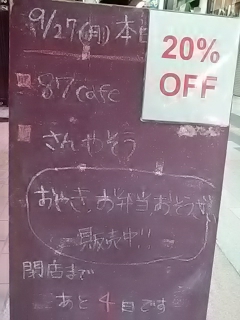 9/27(月)本日
20%
OFF
87cafe
さんやそう
おやき、お弁当おそうざい
販売中!!
閉店まで
あと4日です